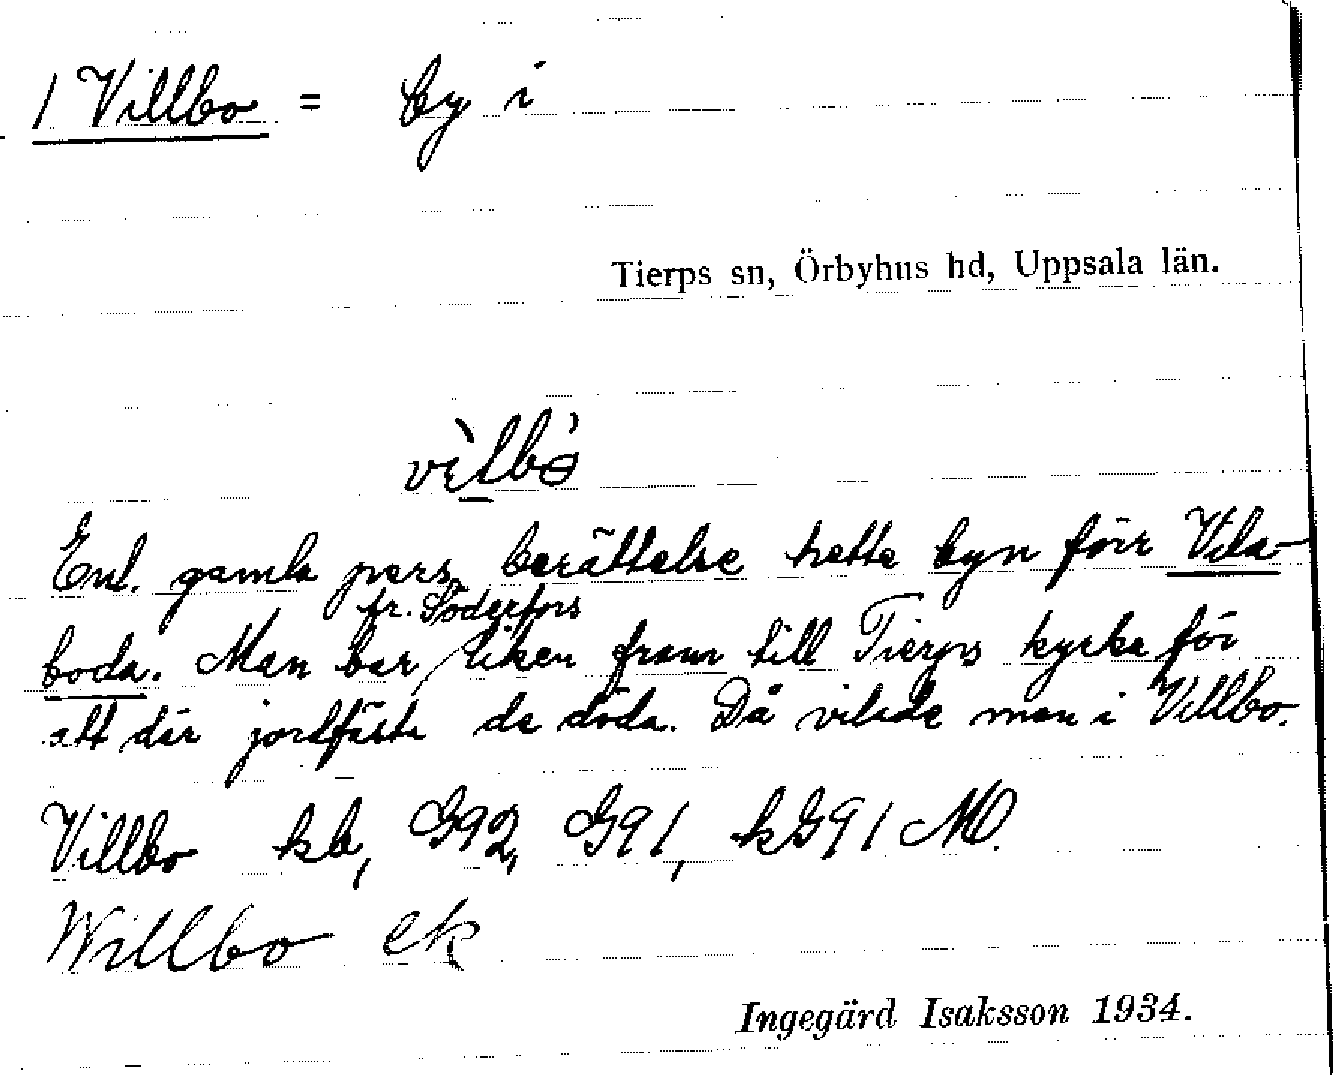 1 Villbo = by i
Tierps sn, Örbyhus hd, Uppsala län.
Enl. gamla pers. berättelse hette byn förr Vila-
fr. Söderfors
boda. Man bar liken fram till Tierps kyrka för
att där jordfästa de döda. Då vilade man i Villbo.
Villbo kb, G92, G91, kG91 M.
Willbo ek
Ingegärd Isaksson 1934.